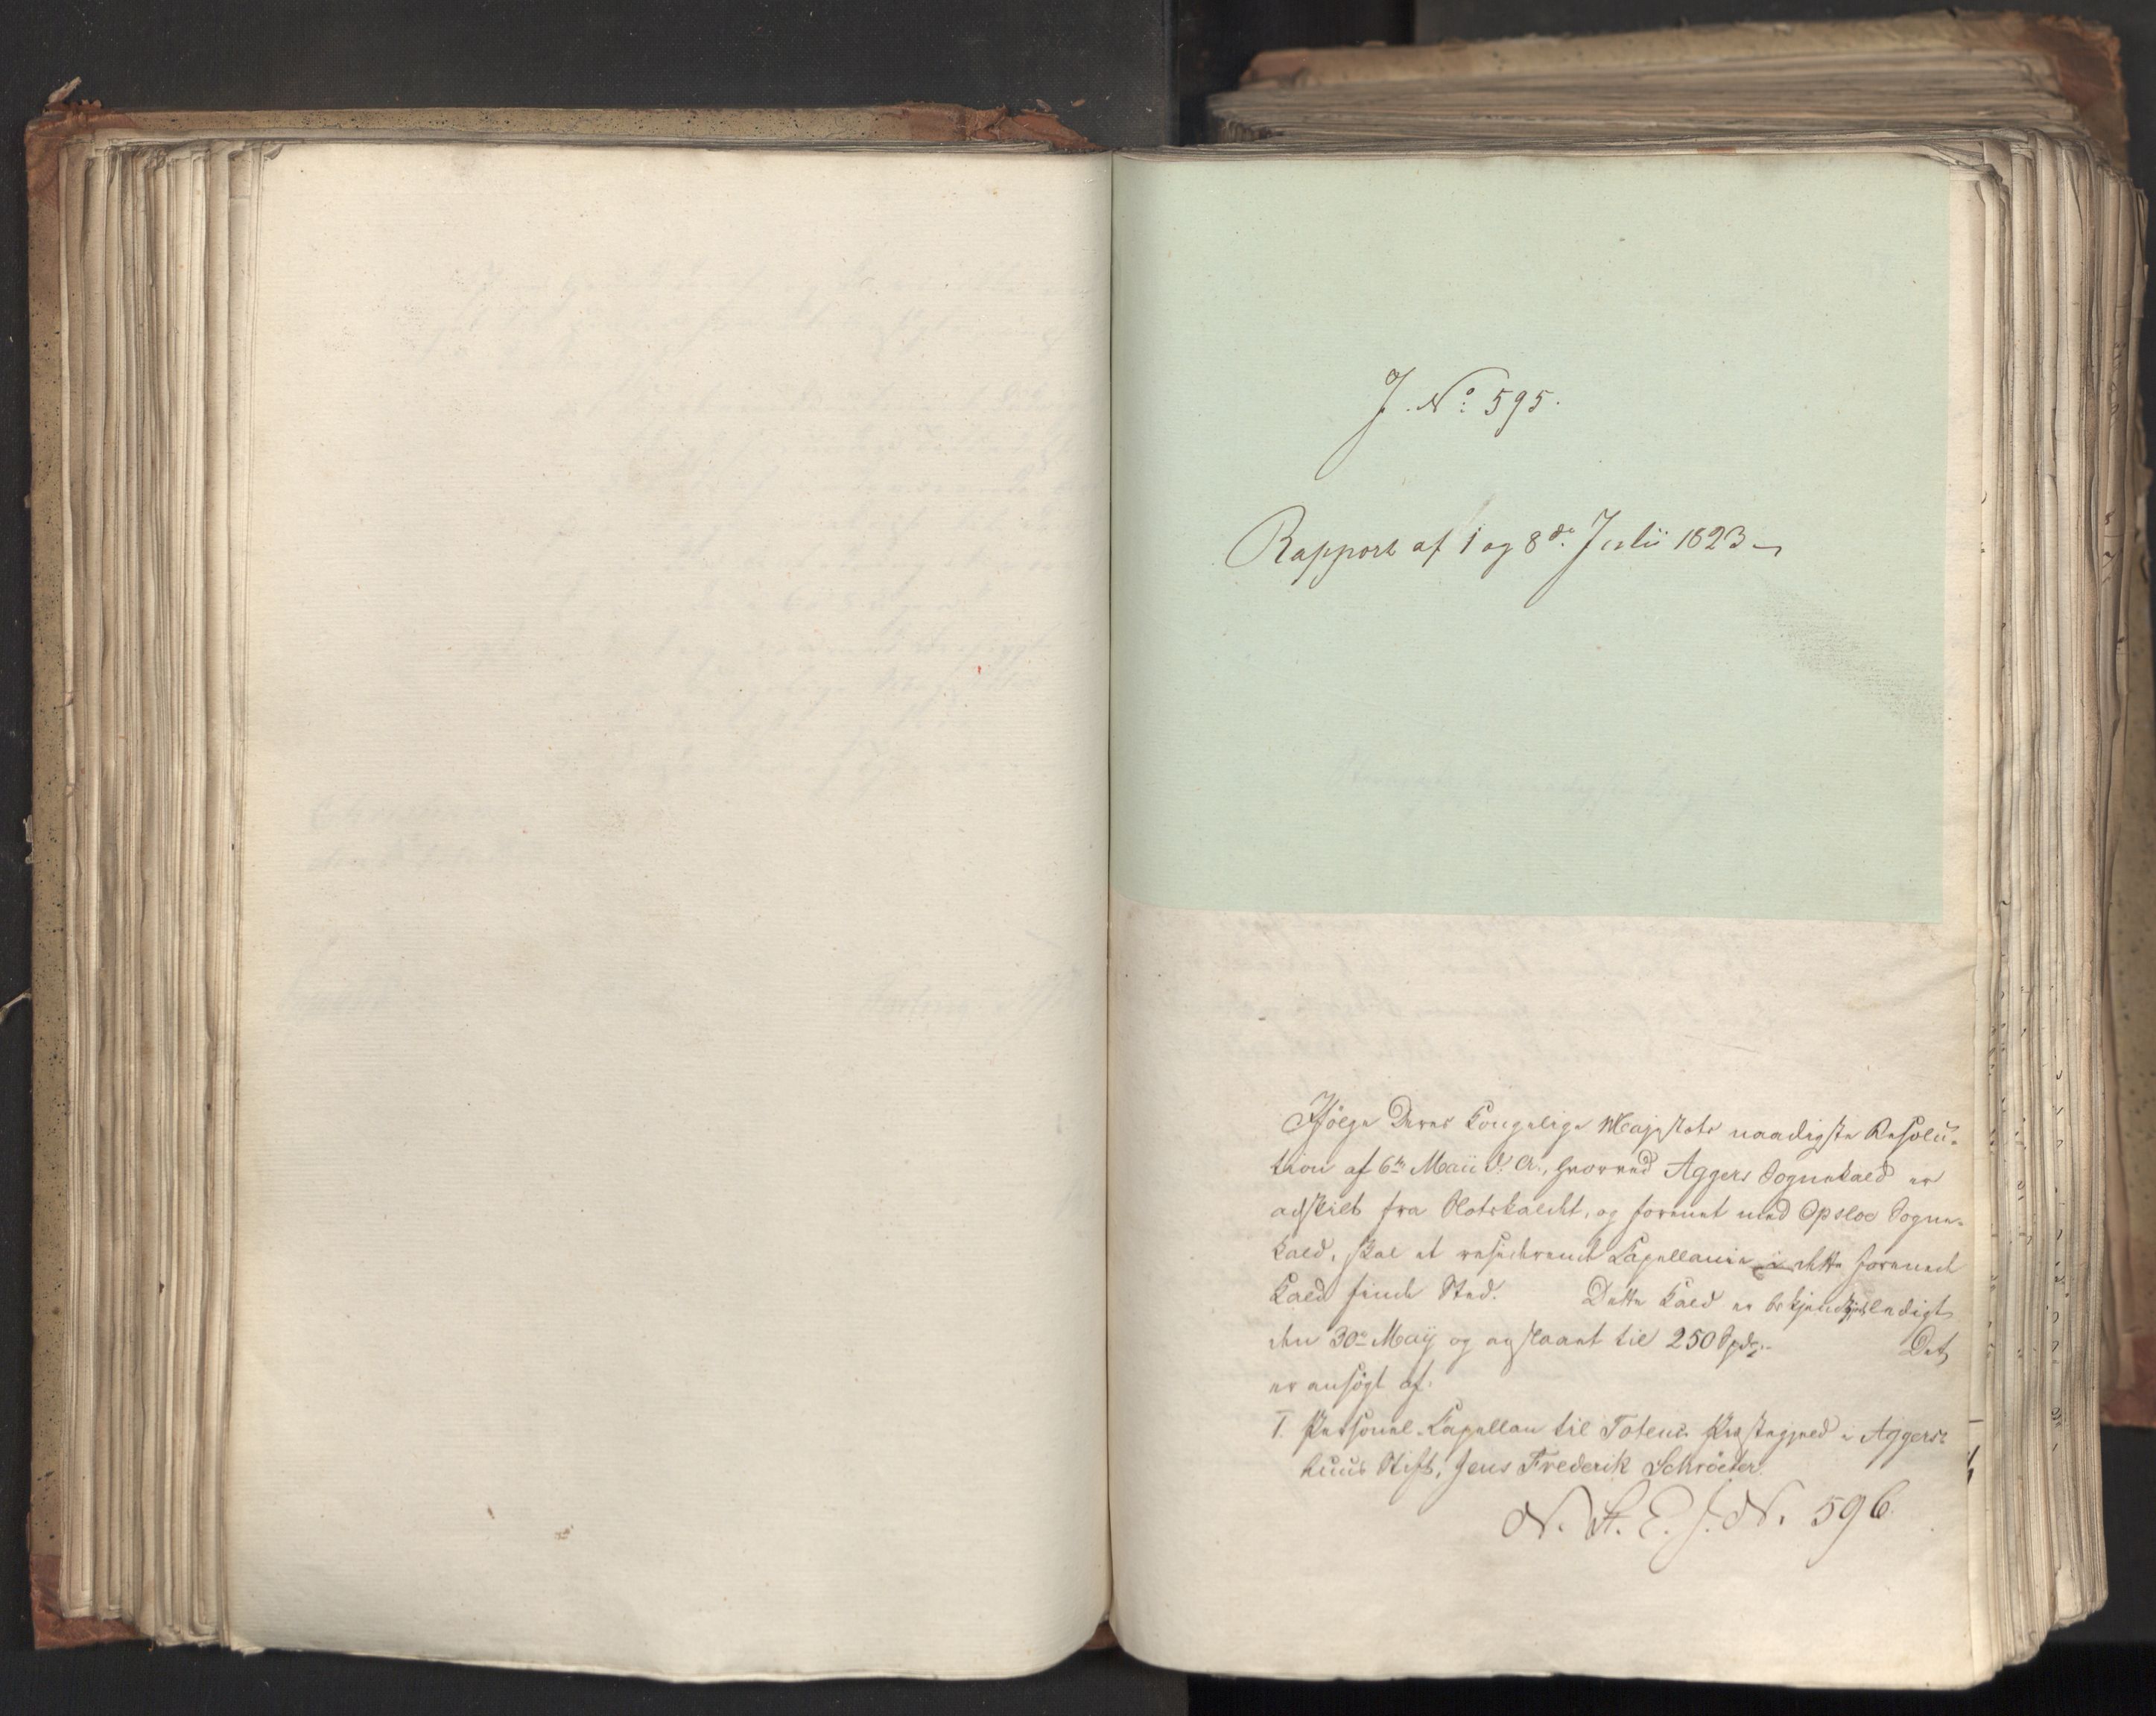 J. No: 595.
Rapport af 1 og 8de Julii 1823
Ifölge Deres Kongelige Majestæts naadigste Resolu-
tion af 6te Maii d. A., hvorved Aggers Sognekald er
adskilt fra Slotskaldet, og forenet med Opsloe Sogne-
kald, skal et residerende Capellanie i dette forenede
Kald finde Sted. Dette Kald er bekjendtgjort ledigt
den 30te Maij og anslaaet til 250 Spd. Det
er ansögt af:
1. Personel-Capellan til Totens Præstegjeld i Aggers-
huus Stift, Jens Frederik Schröeter
N. St. E. J. N. 596.